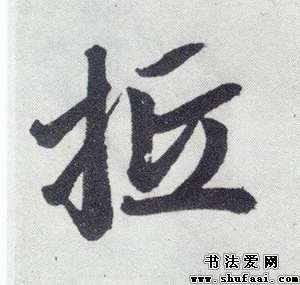 抵
书法爱网
www.shufaai.com